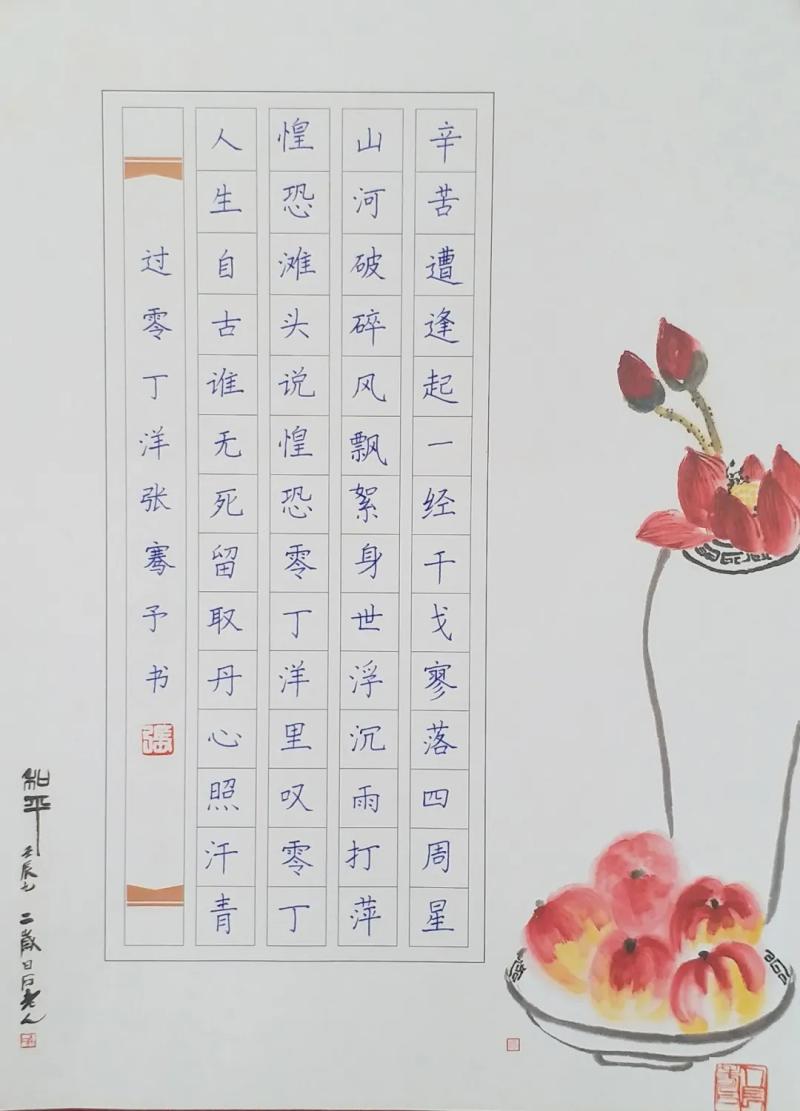 辛苦遭逢起一经干戈寥落四周星
山河破碎风飘絮身世浮沉雨打萍
惶恐滩头说惶恐零丁洋里叹零丁
人生自古谁无死留取丹心照汗青
过零丁洋张骞予书
張
和平
壬辰七二歲白石老人